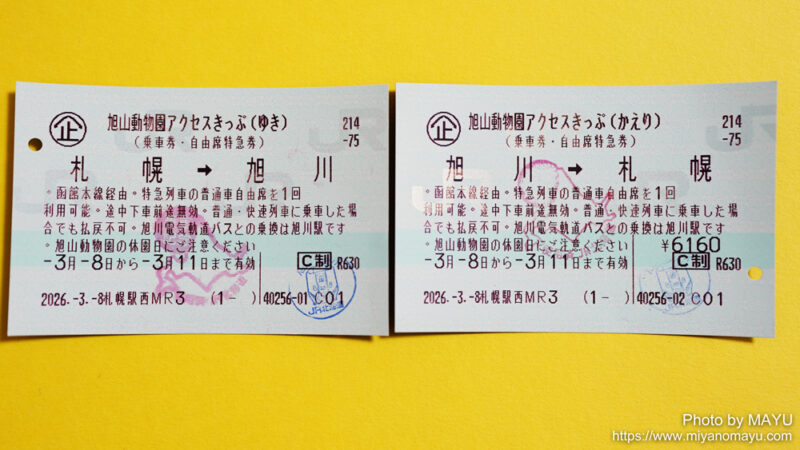 企
旭山動物園アクセスきっぷ(ゆき)
214
-75
(乗車券・自由席特急券)
札幌→旭川
・函館本線経由・特急列車の普通車自由席を1回
利用可能。途中下車前途無効。普通・快速列車に乗車した場
合でも払戻不可。旭川電気軌道バスとの乗換は旭川駅です
・旭山動物園の休園日にご注意ください
-3月-8日から-3月11日まで有効
C制 R630
2026.-3.-8札幌駅西MR3 (1- ) 40256-01 C01
企
旭山動物園アクセスきっぷ(かえり)
214
-75
(乗車券・自由席特急券)
旭川→札幌
・函館本線経由・特急列車の普通車自由席を1回
利用可能。途中下車前途無効。普通・快速列車に乗車した場
合でも払戻不可。旭川電気軌道バスとの乗換は旭川駅です
・旭山動物園の休園日にご注意ください
¥6160
-3月-8日から-3月11日まで有効
C制 R630
2026.-3.-8札幌駅西MR3 (1- ) 40256-02 C01
Photo by MAYU
https://www.miyanomayu.com/